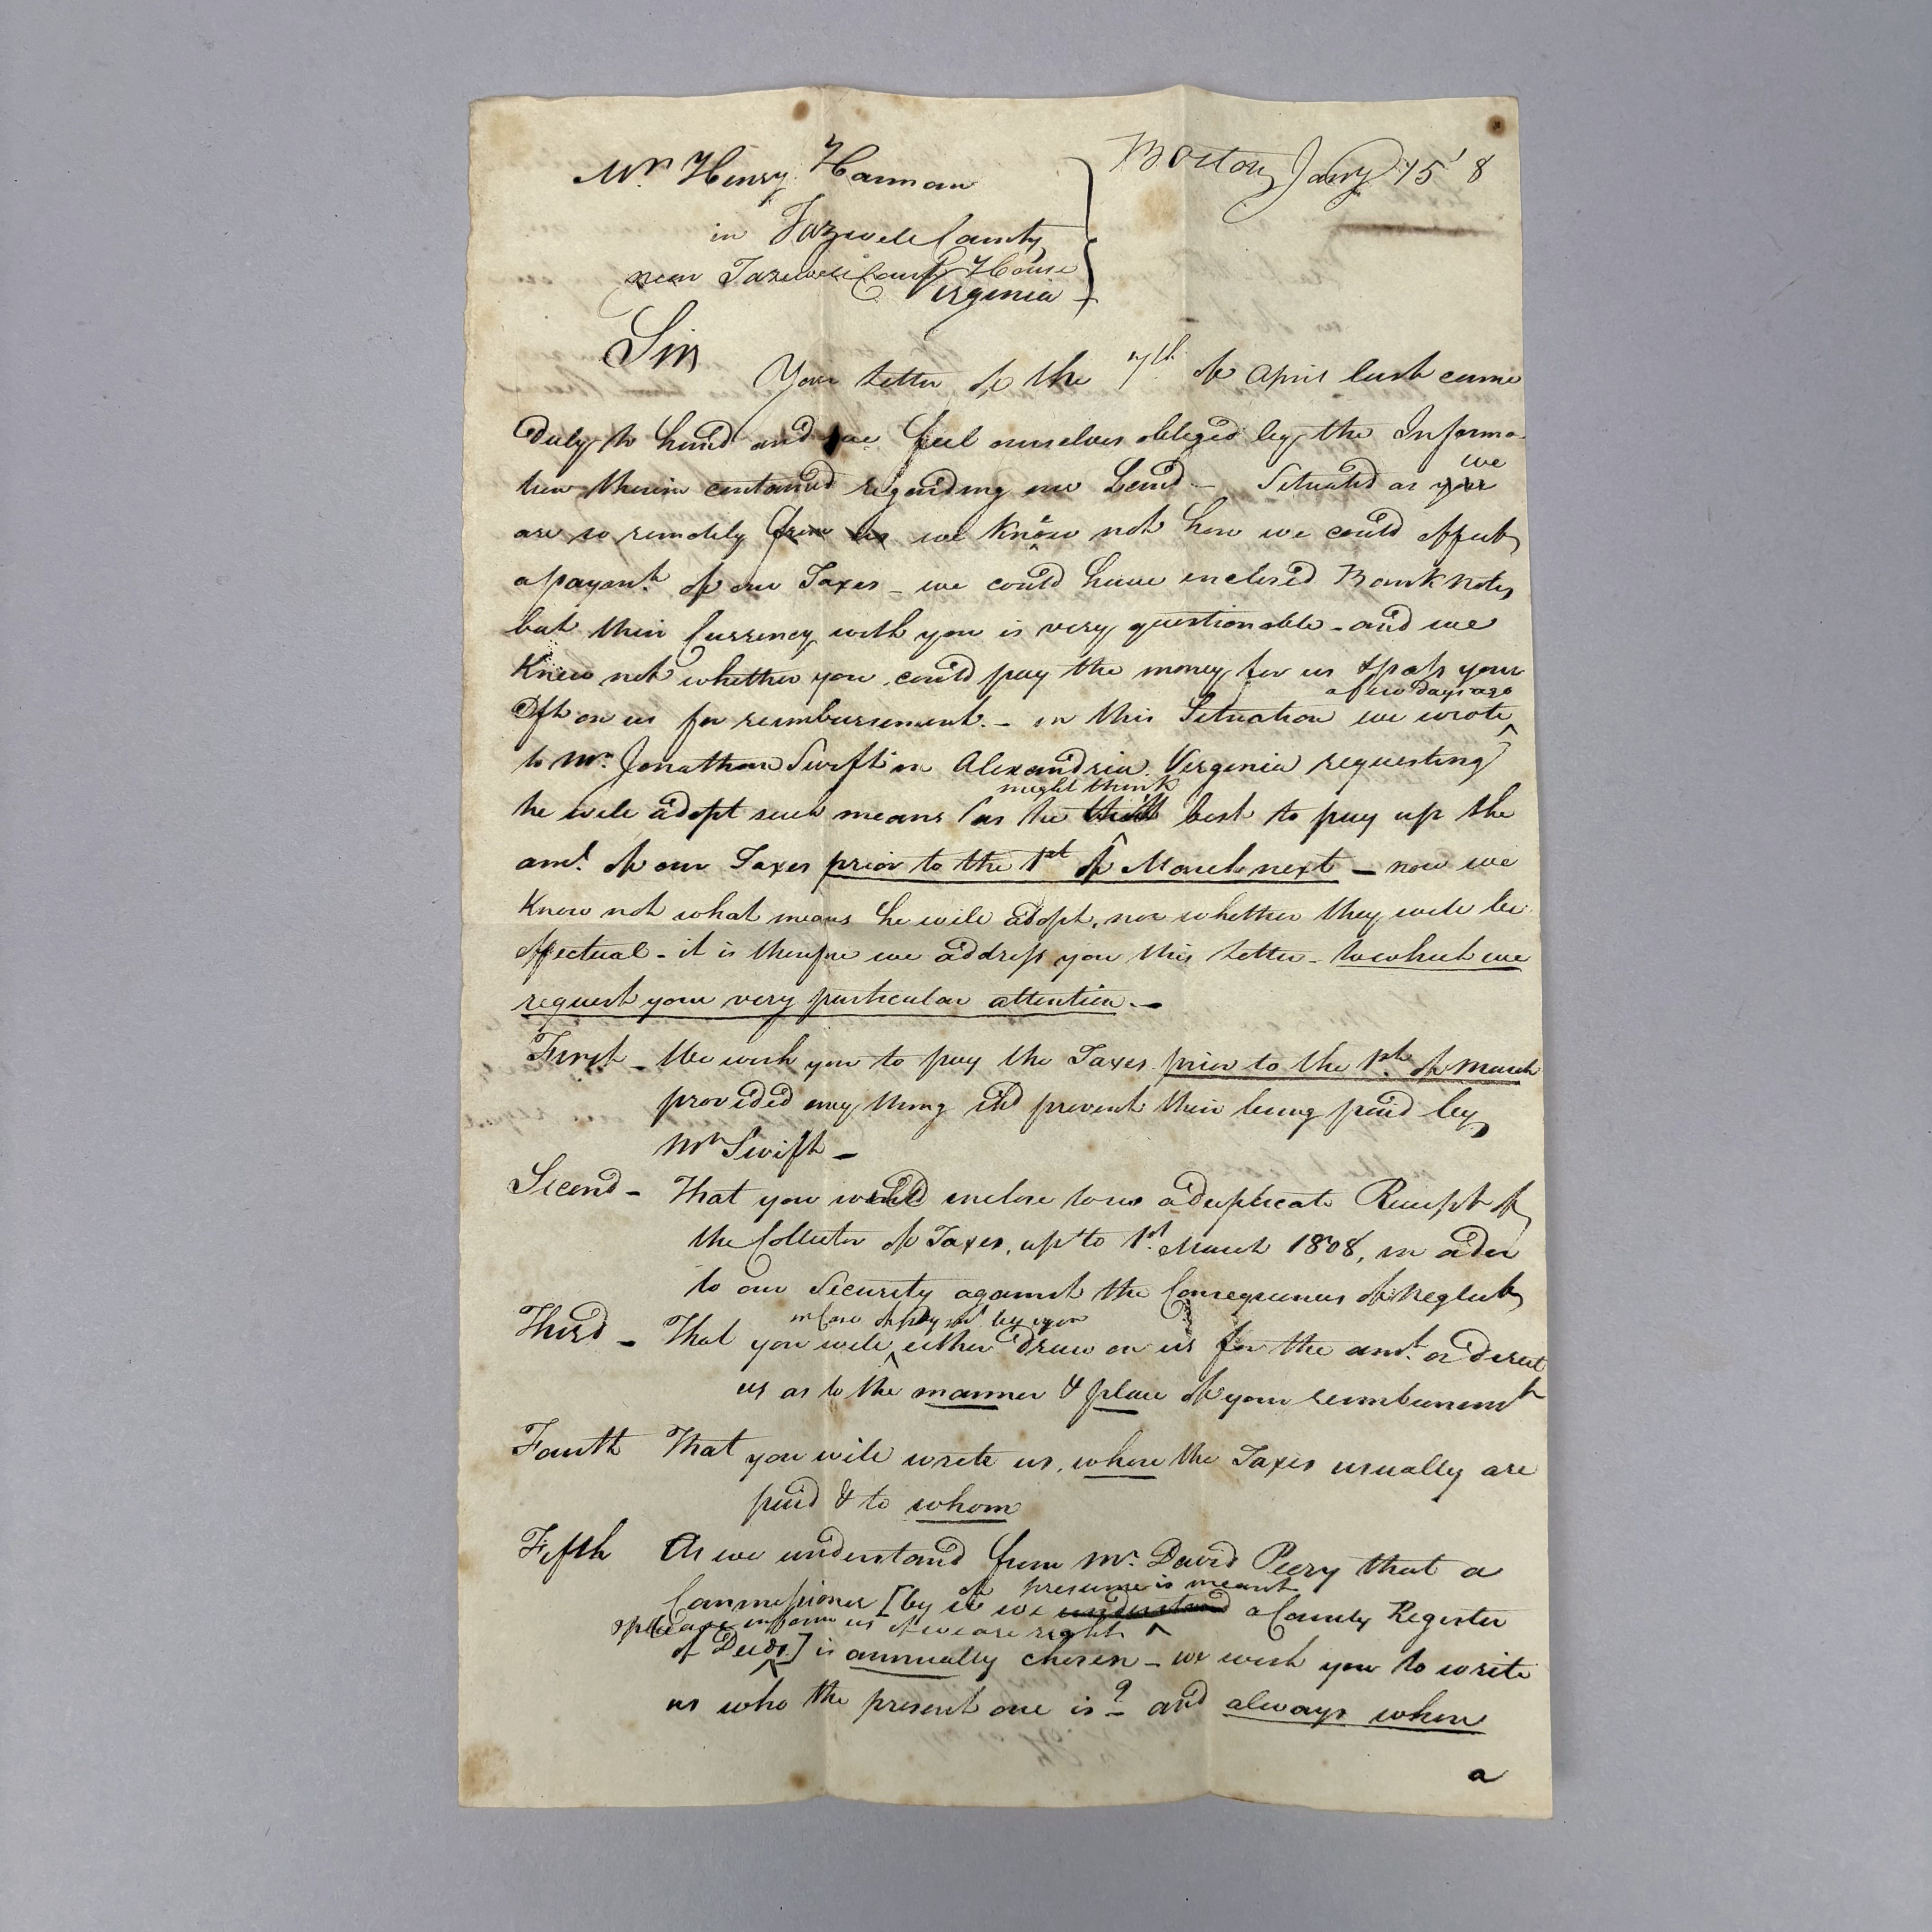 Mr. Henry Harman
Boston Jany 15' 8
in Tazwell County
near Tazewell Court House
Virginia
Sir
Your Letter of the 7th. of April last came
duly to hand and we feel ourselves obliged by the Informa-
tion therein contained regarding our Land - Situated as you we
are so remotely from us we know not how we could effect
a paymt. of our Taxes - we could have enclosed Bank Notes
but their Currency with you is very questionable - and we
Knew not whether you could pay the money for us & pass your
Dft on us for reimbursement. - in this Situation we wrote a few days ago
to Mr. Jonathan Swift in Alexandria Virginia requesting
he will adopt such means as he might think best to pay up the
amt. of our Taxes prior to the 1st of March next - now we
Know not what means he will adopt, nor whether they will be
effectual - it is therefore we address you this Letter - to which we
request your very particular attention. -
First - We wish you to pay the Taxes prior to the 1st. of March
provided any thing shd prevent their being paid by
Mr Swift -
Second - That you would enclose to us a duplicate Receipt of
the Collector of Taxes, up to 1st. March 1808, in order
to our Security against the Consequences of Neglect
Third - That you will in Case of paymt by you either draw on us for the amt. or direct
us as to the manner & place of your reimbursemt
Fourth That you will write us, where the Taxes usually are
paid & to whom
Fifth As we understand from Mr. David Peery that a
Commissioner [by wh we understand presume is meant a County Register
of Deeds] & please inform us if we are right is annually chosen - we wish you to write
us who the present one is? - and always when
a